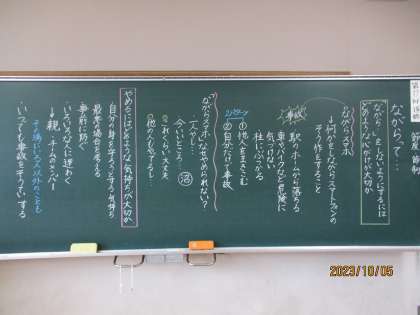 ながらって…
ながら…をしないようにするには
どのような心がけが大切か
ながらスマホ
→何かをしながらスマートフォンの
そう作をすること
事故
駅のホームから落ちる
車やバイクなど危険に
気づけない
柱にぶつかる
2パターン
①他人をまきこむ
②自分だけで事故
ながらスマホはなぜやめられない?
一人でし…
今いいところ…
これくらい大丈夫
他の人もやってる…
やめるにはどのような気持ちが大切か
自分の身を守ろうとする気持ち
最悪の場合を考える
事前に防ぐ
…いろいろな人に迷わく
→親、チームのメンバー
その場にいる人以外のことも
…いつでも事故をそうていする
2023/10/05